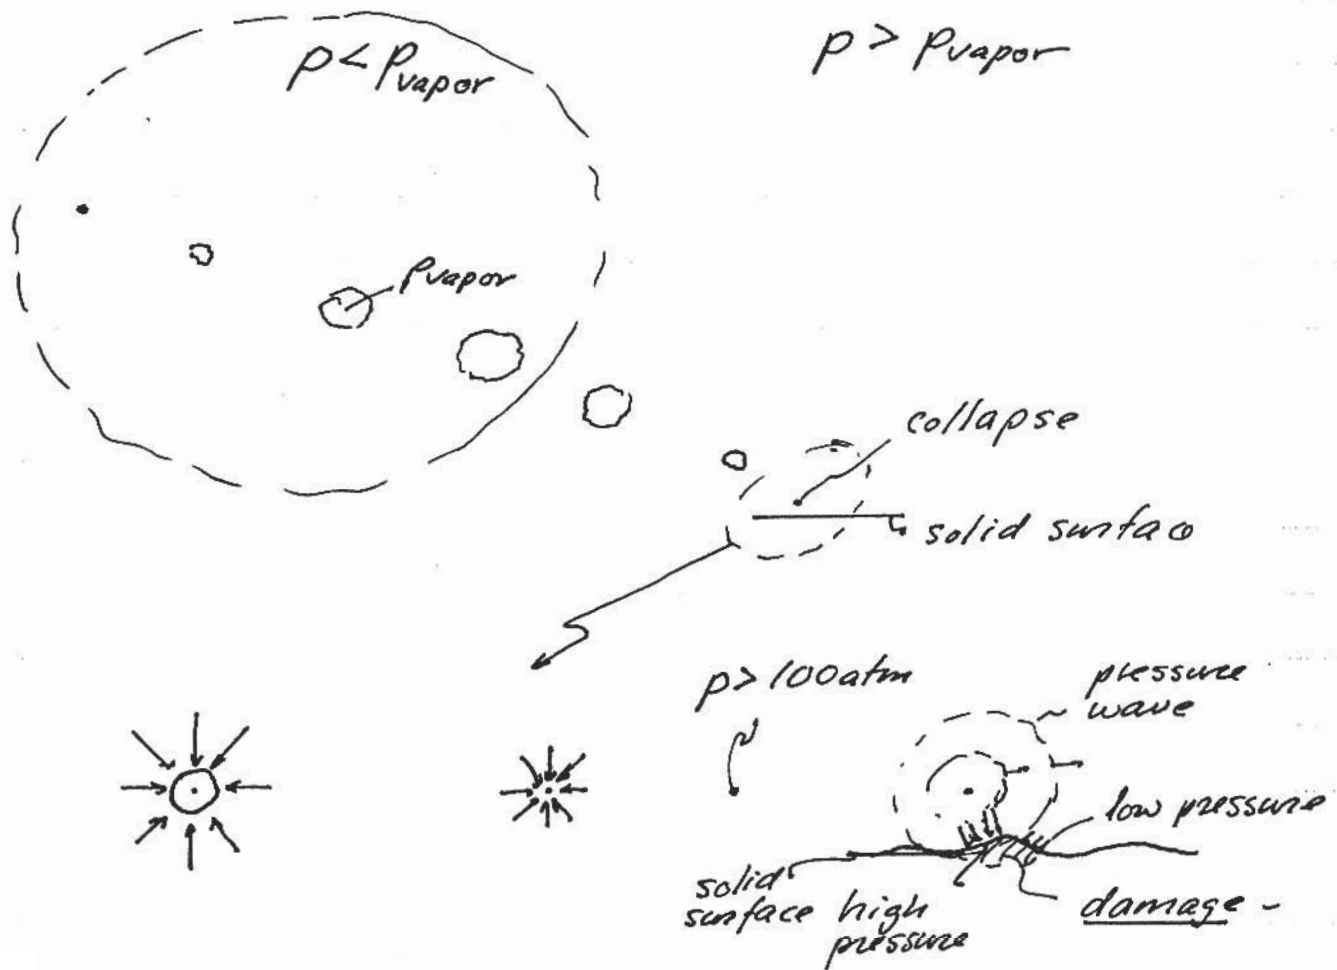 p < pvapor
p > pvapor
pvapor
collapse
solid surface
p > 100atm
pressure
wave
low pressure
solid
surface
high
pressure
damage -